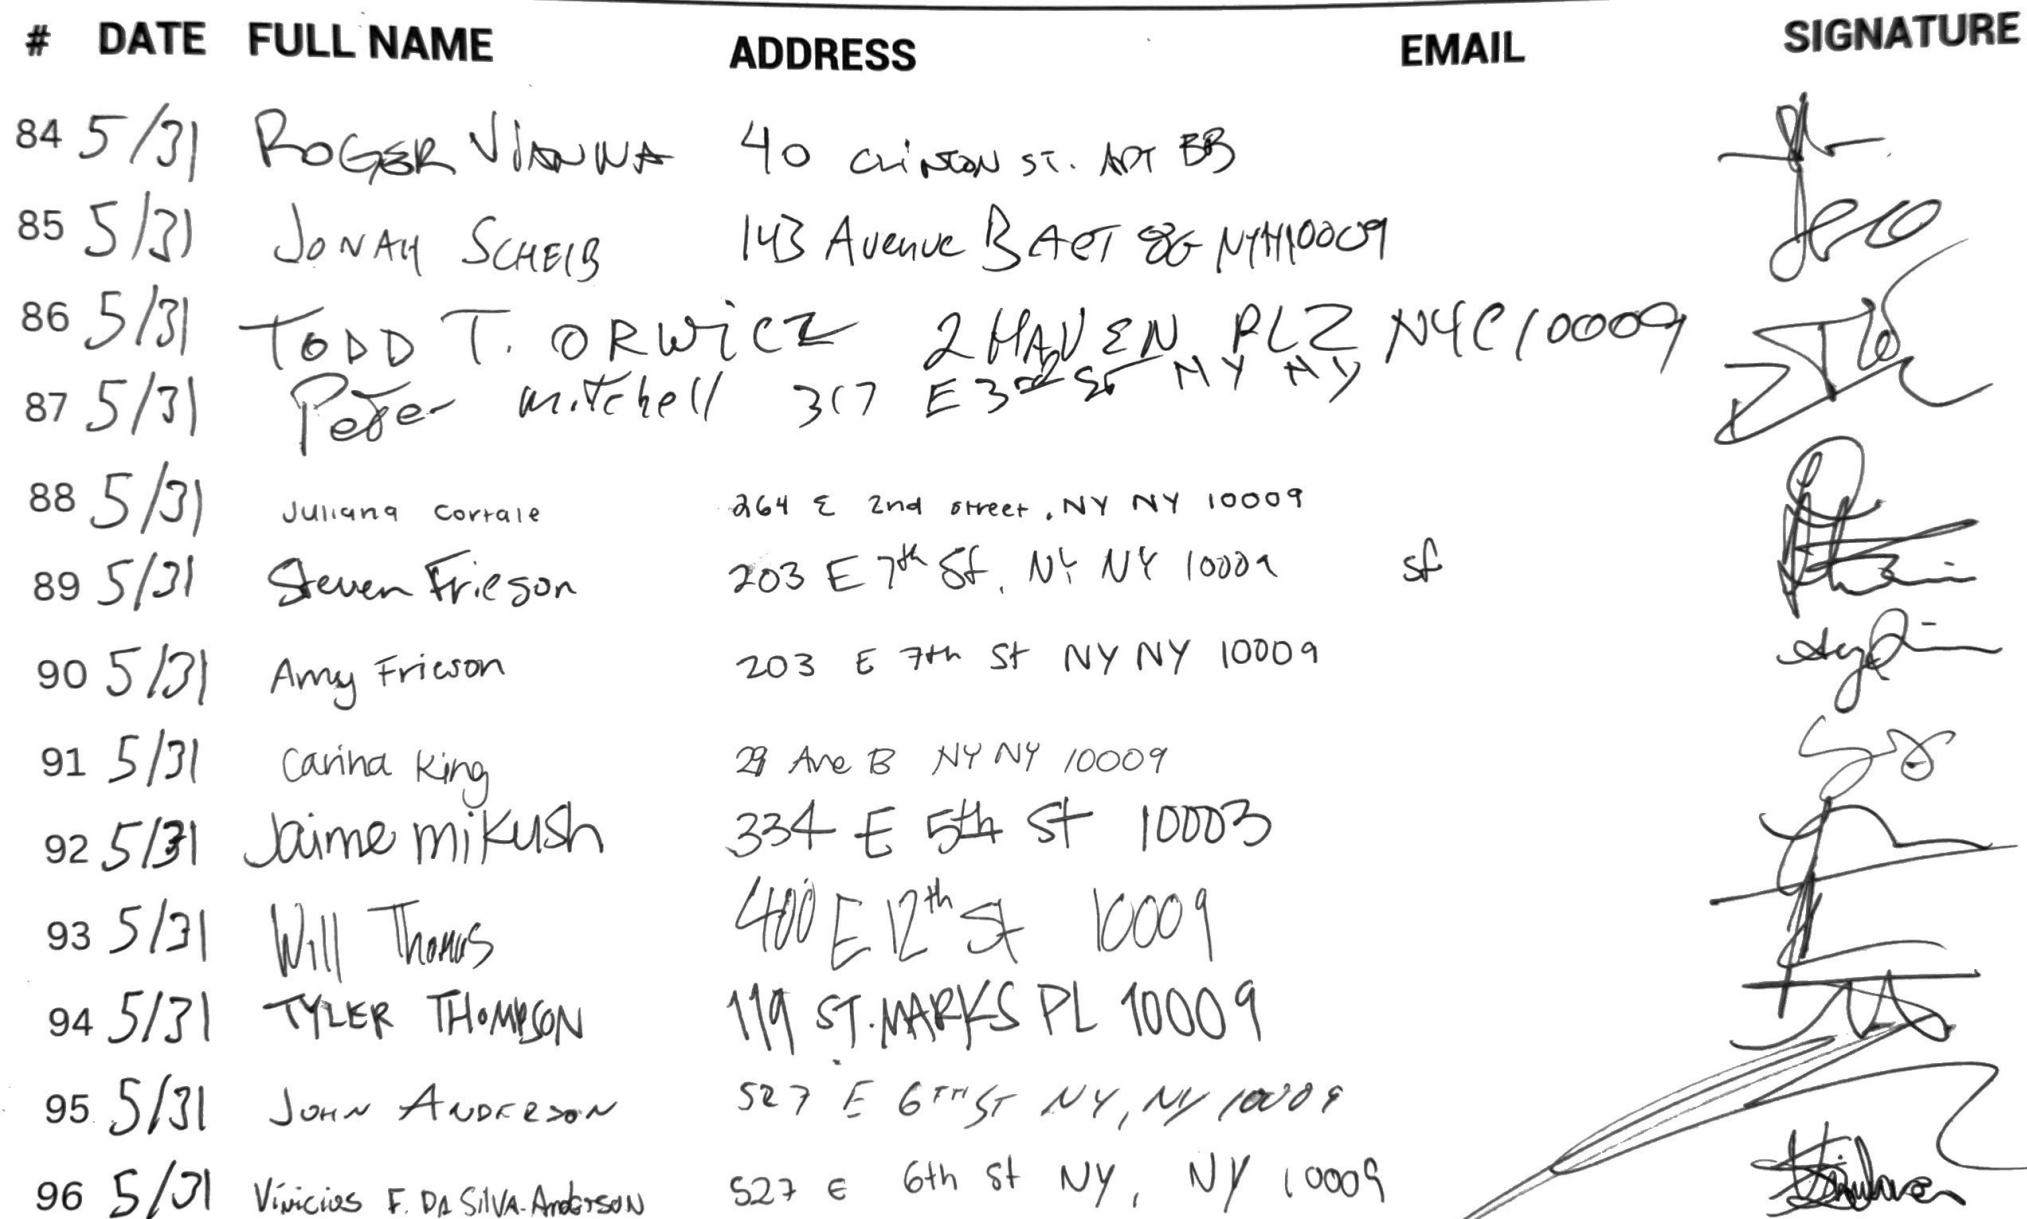 # DATE FULL NAME ADDRESS EMAIL SIGNATURE
84 5/31 ROGER VIANNA 40 CLINTON ST. APT BB
85 5/31 JONAH SCHEIB 143 Avenue B APT 8G NY NY 10009
86 5/31 TODD T. ORWICZ 2 HAVEN PLZ NYC 10009
87 5/31 Peter mitchell 317 E 3rd St NY NY
88 5/31 Juliana Corrale 264 E 2nd street, NY NY 10009
89 5/31 Steven Frieson 203 E 7th St, NY NY 10009 sf
90 5/31 Amy Frieson 203 E 7th St NY NY 10009
91 5/31 Carina King 29 Ave B NY NY 10009
92 5/31 Jaime mikush 334 E 5th St 10003
93 5/31 Will Thomas 400 E 12th St 10009
94 5/31 TYLER THOMPSON 119 ST. MARKS PL 10009
95 5/31 JOHN ANDERSON 527 E 6TH ST NY, NY 10009
96 5/31 Vinicius F. DA SILVA-Anderson 527 E 6th St NY, NY 10009